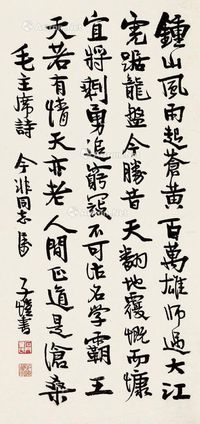 鍾山風雨起蒼黃百萬雄師過大江
虎踞龍盤今勝昔天翻地覆慨而慷
宜將剩勇追窮寇不可沽名学霸王
天若有情天亦老人間正道是滄桑
毛主席詩 今非同志属 子愷書